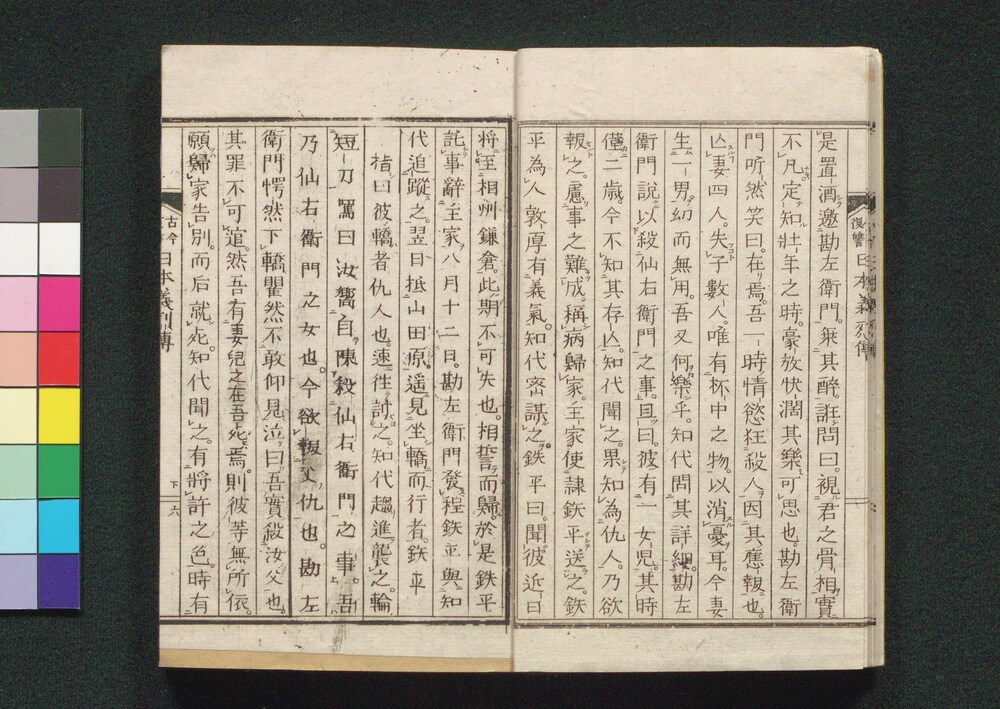 是置酒邀勘左衛門。乗其醉。誑問曰。視君之骨相實
不凡。定知壯年之時。豪放快濶其樂可思也。勘左衛
門听然笑曰。在焉。吾一時情慾狂殺人。因其應報也。
亾妻四人。失子數人。唯有杯中之物。以消憂耳。今妻
生一男。幼而無用。吾又何樂乎。知代問其詳細。勘左
衛門說以殺仙右衛門之事。且曰。彼有一女兒。其時
僅二歳。今不知其存亾。知代聞之。果知為仇人。乃欲
報之。慮事之難成。稱病歸家。主家使隷鉄平送之。鉄
平為人敦厚有義氣。知代密謀之。鉄平曰。聞彼近日
復讐日本義烈傳
将至相州鎌倉。此期不可失也。相誓而歸。於是鉄平
託事辭主家。八月十二日。勘左衛門發程。鉄平與知
代追蹤之。翌日抵山田原。遥見坐轎而行者。鉄平
指曰彼轎者仇人也。速徃討之。知代趨進襲之。輪
短刀罵曰汝嚮自陳殺仙右衛門之事。吾
乃仙右衛門之女也。今欲報父仇也。勘左
衛門愕然下轎瞿然不敢仰見。泣曰。吾實殺汝父也。
其罪不可逭。然吾有妻兒之在。吾死焉。則彼等無所依。
願歸家告別。而后就死。知代聞之。有將許之色。時有
古今日本義烈傳
下
六